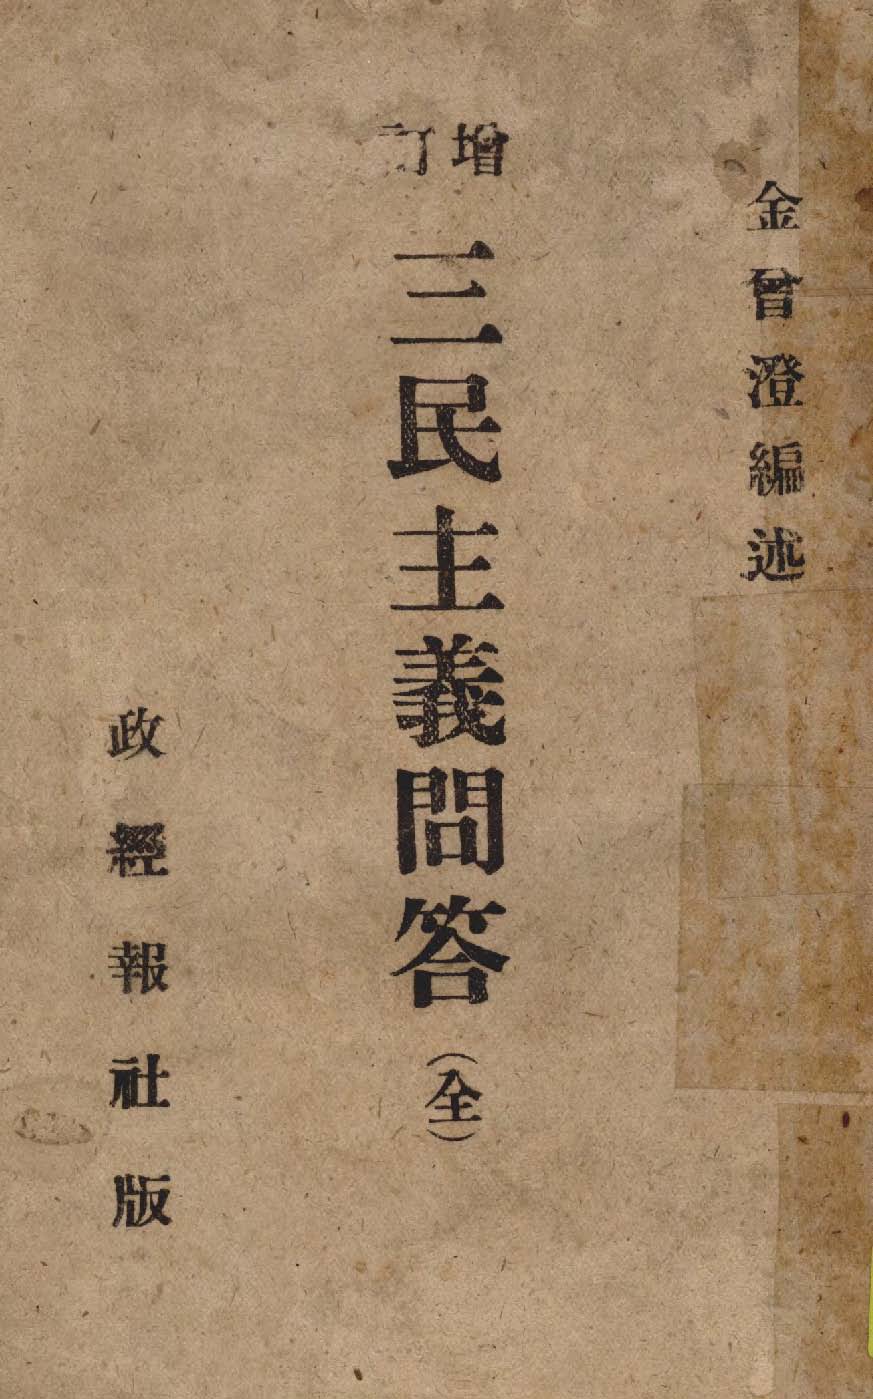 金曾澄編述
增訂
三民主義問答(全)
政經報社版